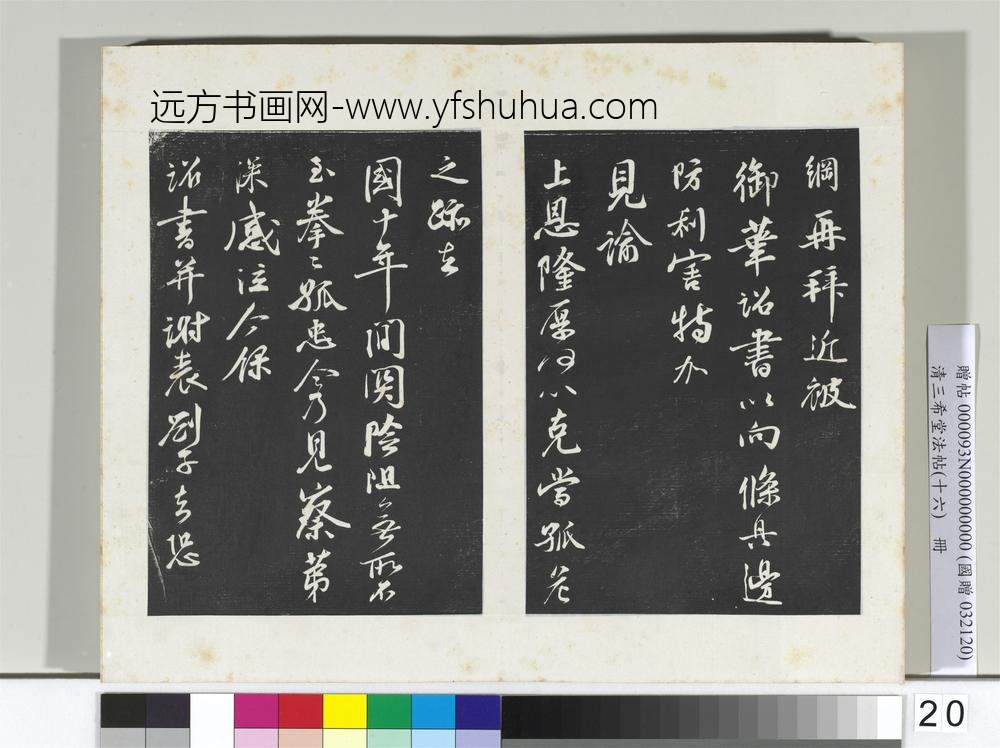 远方书画网-www.yfshuhua.com
綱再拜近被
御筆詔書以向條具邊
防利害特加
見諭
上恩隆厚何以克當孤危
之跡去
國十年間關險阻無所不
至拳〻孤忠今乃見察第
深感泣今保
詔書并謝表劉子去恐
贈帖 000093N000000000 (國贈 032120)
清三希堂法帖(十六) 冊
20